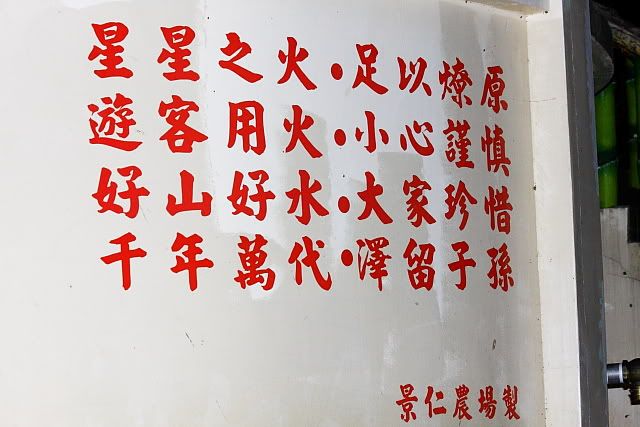 星星之火•足以燎原
遊客用火•小心謹慎
好山好水•大家珍惜
千年萬代•澤留子孫
景仁農場製